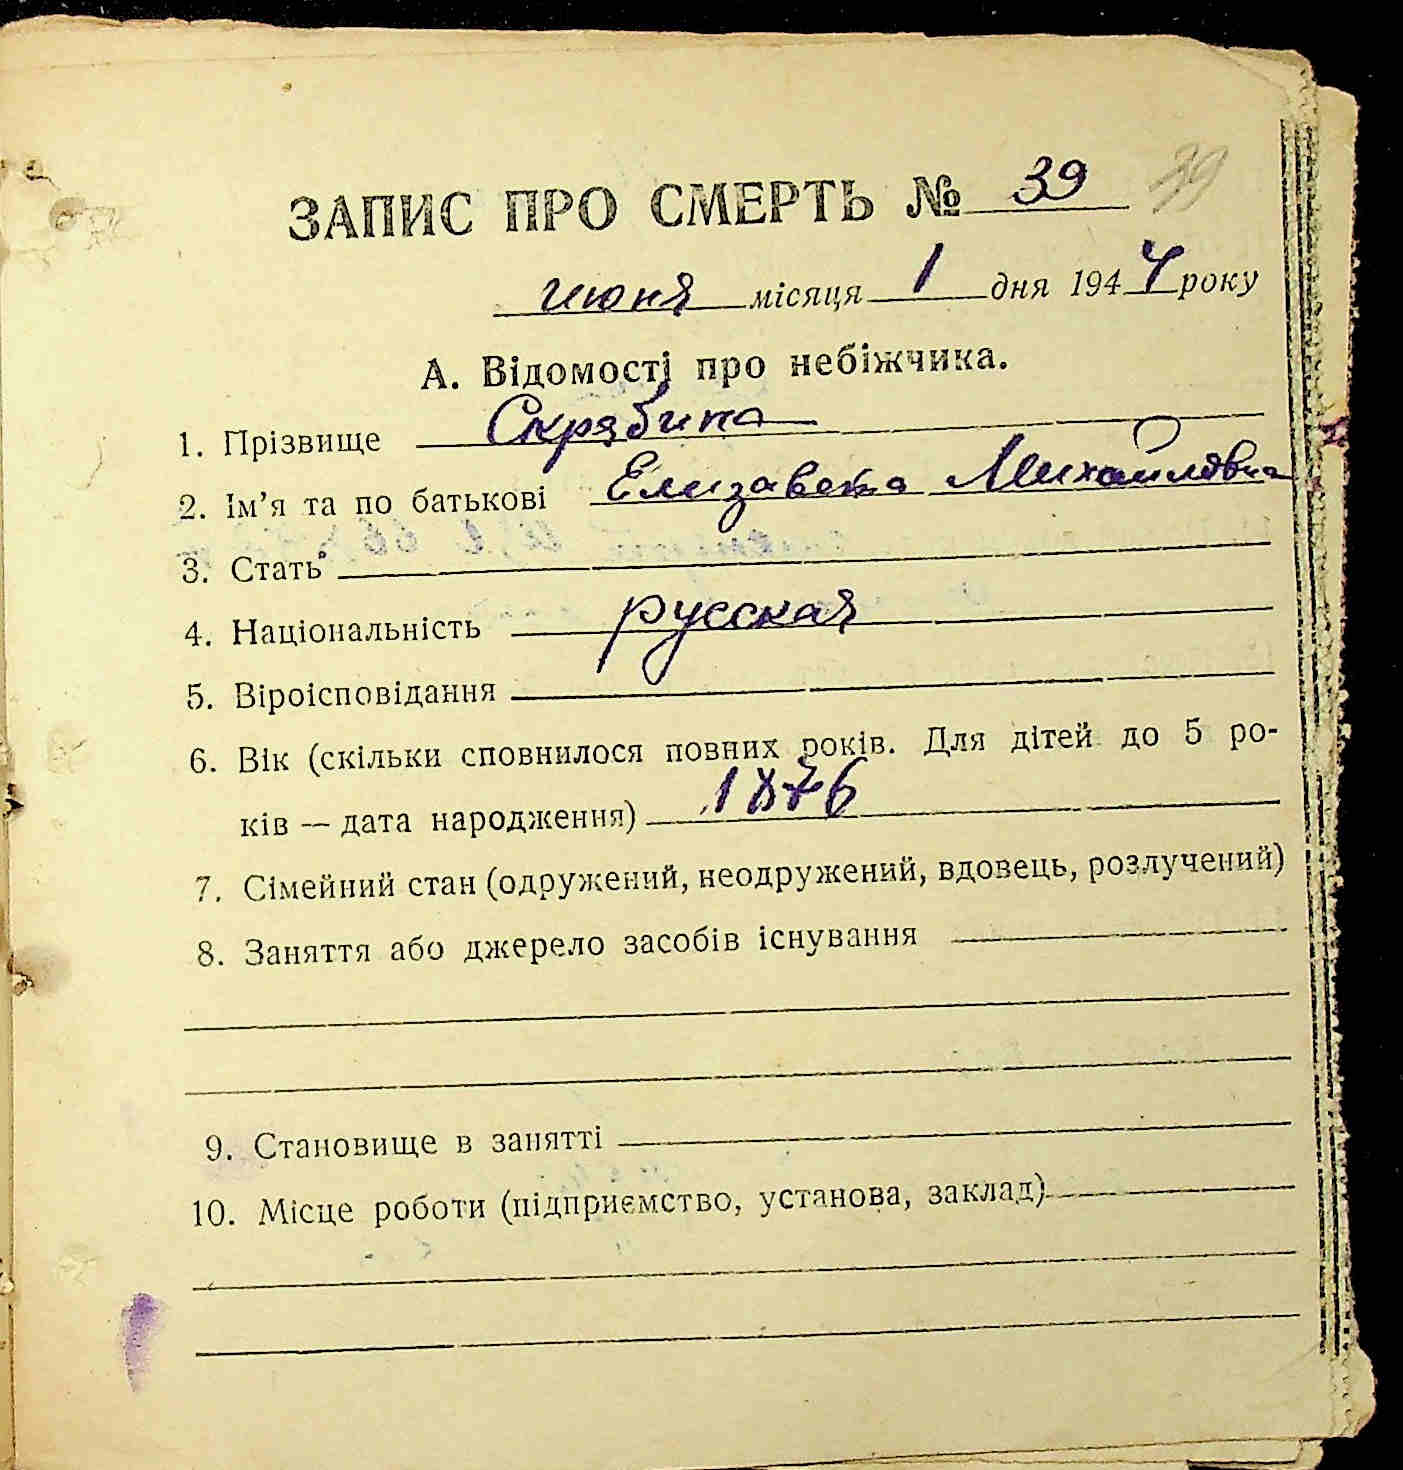 ЗАПИС ПРО СМЕРТЬ № 39 39
июня місяця 1 дня 1944 року
А. Відомості про небіжчика.
1. Прізвище Скрябина
2. Ім'я та по батькові Елизавета Михайловна
3. Стать
4. Національність русская
5. Віроісповідання
6. Вік (скільки сповнилося повних років. Для дітей до 5 ро-
ків — дата народження) 1876
7. Сімейний стан (одружений, неодружений, вдовець, розлучений)
8. Заняття або джерело засобів існування
9. Становище в занятті
10. Місце роботи (підприємство, установа, заклад)